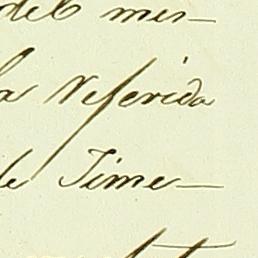 del mis-
la Referida
de Jime-